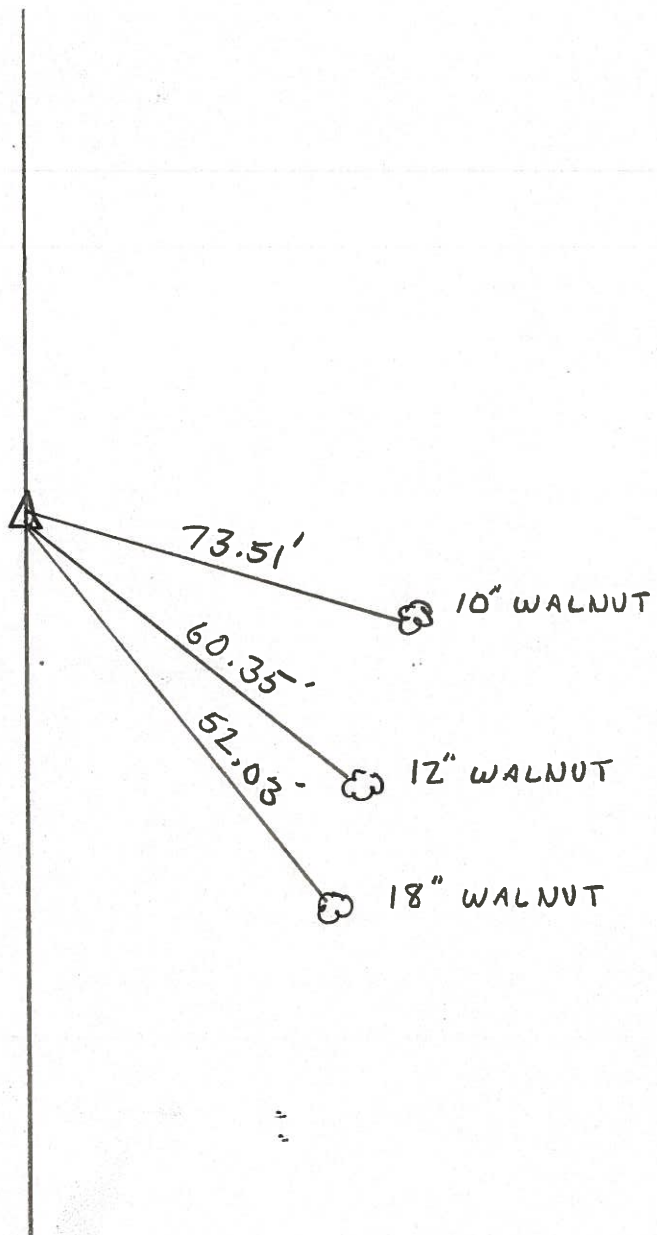 73.51'
10" WALNUT
60.35'
12" WALNUT
52.03'
18" WALNUT